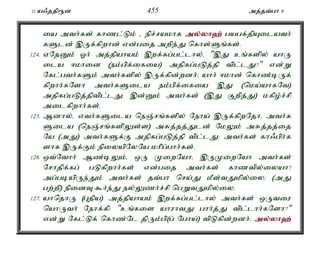 11 யஃததிரூன 455 அத்தவ்பா 9
யை அவர்கள் காணட்டும் , நிச்சயமாக அல்லாஹ் பயபக்தியுடையவர்
களுடன் இருக்கிறான் என்பதை அறிந்து கொள்ளுங்கள்.
124. ஏதேனும் ஓர் அத்தியாயம் இறக்கப்பட்டால், "இது உங்களில் யாரு
டைய ஈமானை (நம்பிக்கையை) அதிகப்படுத்தி விட்டது?" என்று
கேட்பவர்களும் அவர்களில் இருக்கின்றனர்; யார் ஈமான் கொண்டிருக்
கிறார்களோ அவர்களுடைய நம்பிக்கையை இது (மெய்யாகவே)
அதிகப்படுத்திவிட்டது. இன்னும் அவர்கள் (இது குறித்து) மகிழ்ச்சி
அடைகிறார்கள்.
125. ஆனால், எவர்களுடைய நெஞ்சங்களில் நோய் இருக்கிறதோ, அவர்க
ளுடைய (நெஞ்சங்களிலுள்ள) அசுத்தத்துடன் மேலும் அசுத்தத்தை
யே (அது) அவர்களுக்கு அதிகப்படுத்தி விட்டது; அவர்கள் காஃபிர்க
ளாக இருக்கும் நிலையிலேயே மரிப்பார்கள்.
126. ஒவ்வோர் ஆண்டிலும், ஒரு முறையோ, இருமுறையோ அவர்கள்
சோதிக்கப் படுகிறார்கள் என்பதை அவர்கள் காணவில்லையா?
அப்படியிருந்தும் அவர்கள் தவ்பா செய்து மீள்வதுமில்லை; (அது
பற்றி) நினைவு கூர்ந்து நல்லுணர்ச்சி பெறுவதுமில்லை.
127. யாதொரு (புதிய) அத்தியாயம் இறக்கப்பட்டால் அவர்கள் ஒருவரை
யொருவர் நோக்கி: "உங்களை யாராவது பார்த்து விட்டார்களோ?"
என்று கேட்டுக் கொண்டே திரும்பி(ப் போய்) விடுகின்றனர்; அல்லாஹ்